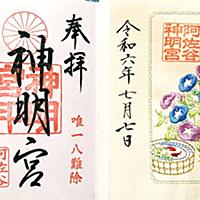 奉拝
神明宮
唯一八難除
神明宮
阿佐谷
令和六年七月七日
阿佐谷
神明宮